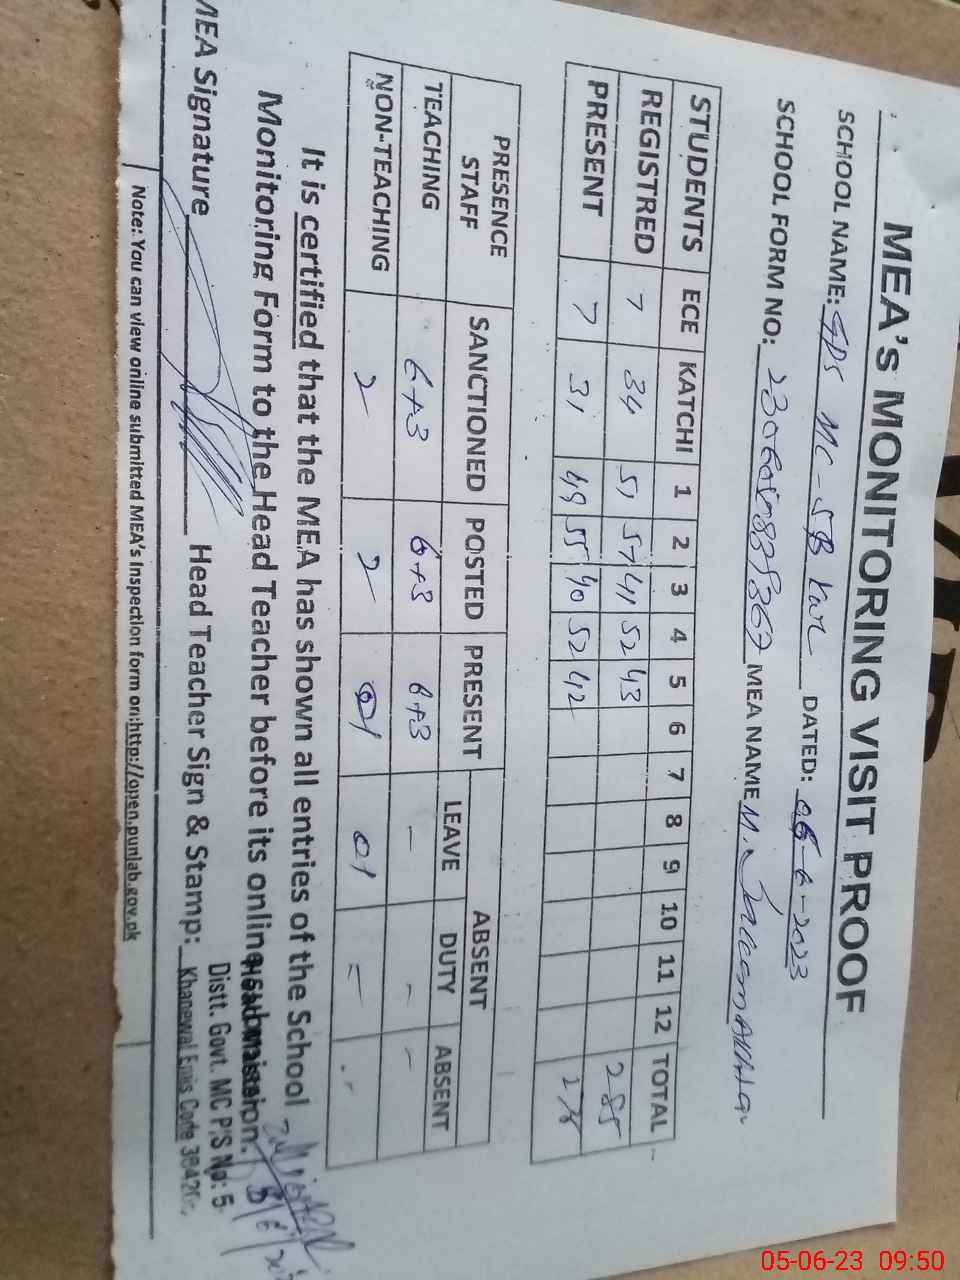 MEA's MONITORING VISIT PROOF
SCHOOL NAME: GPS MC-5B kwl DATED: 05-6-2023
SCHOOL FORM NO: MEA NAME M.
STUDENTS ECE KATCHI 1 2 3 4 5 6 7 8 9 10 11 12 TOTAL
REGISTRED 7 34 51 57 41 52 43 285
PRESENT 7 31 49 55 40 52 42 276
PRESENCE STAFF SANCTIONED POSTED PRESENT ABSENT
LEAVE DUTY ABSENT
TEACHING 6+3 6+3 6+3 - - -
NON-TEACHING 2 2 01 01 - -
It is certified that the MEA has shown all entries of the School
Monitoring Form to the Head Teacher before its online submission.
MEA Signature Head Teacher Sign & Stamp:
Distt. Govt. MC P/S No: 5
Khanewal Emis Code
Note: You can view online submitted MEA's inspection form on:http://open.punlab.gov.pk
05-06-23 09:50